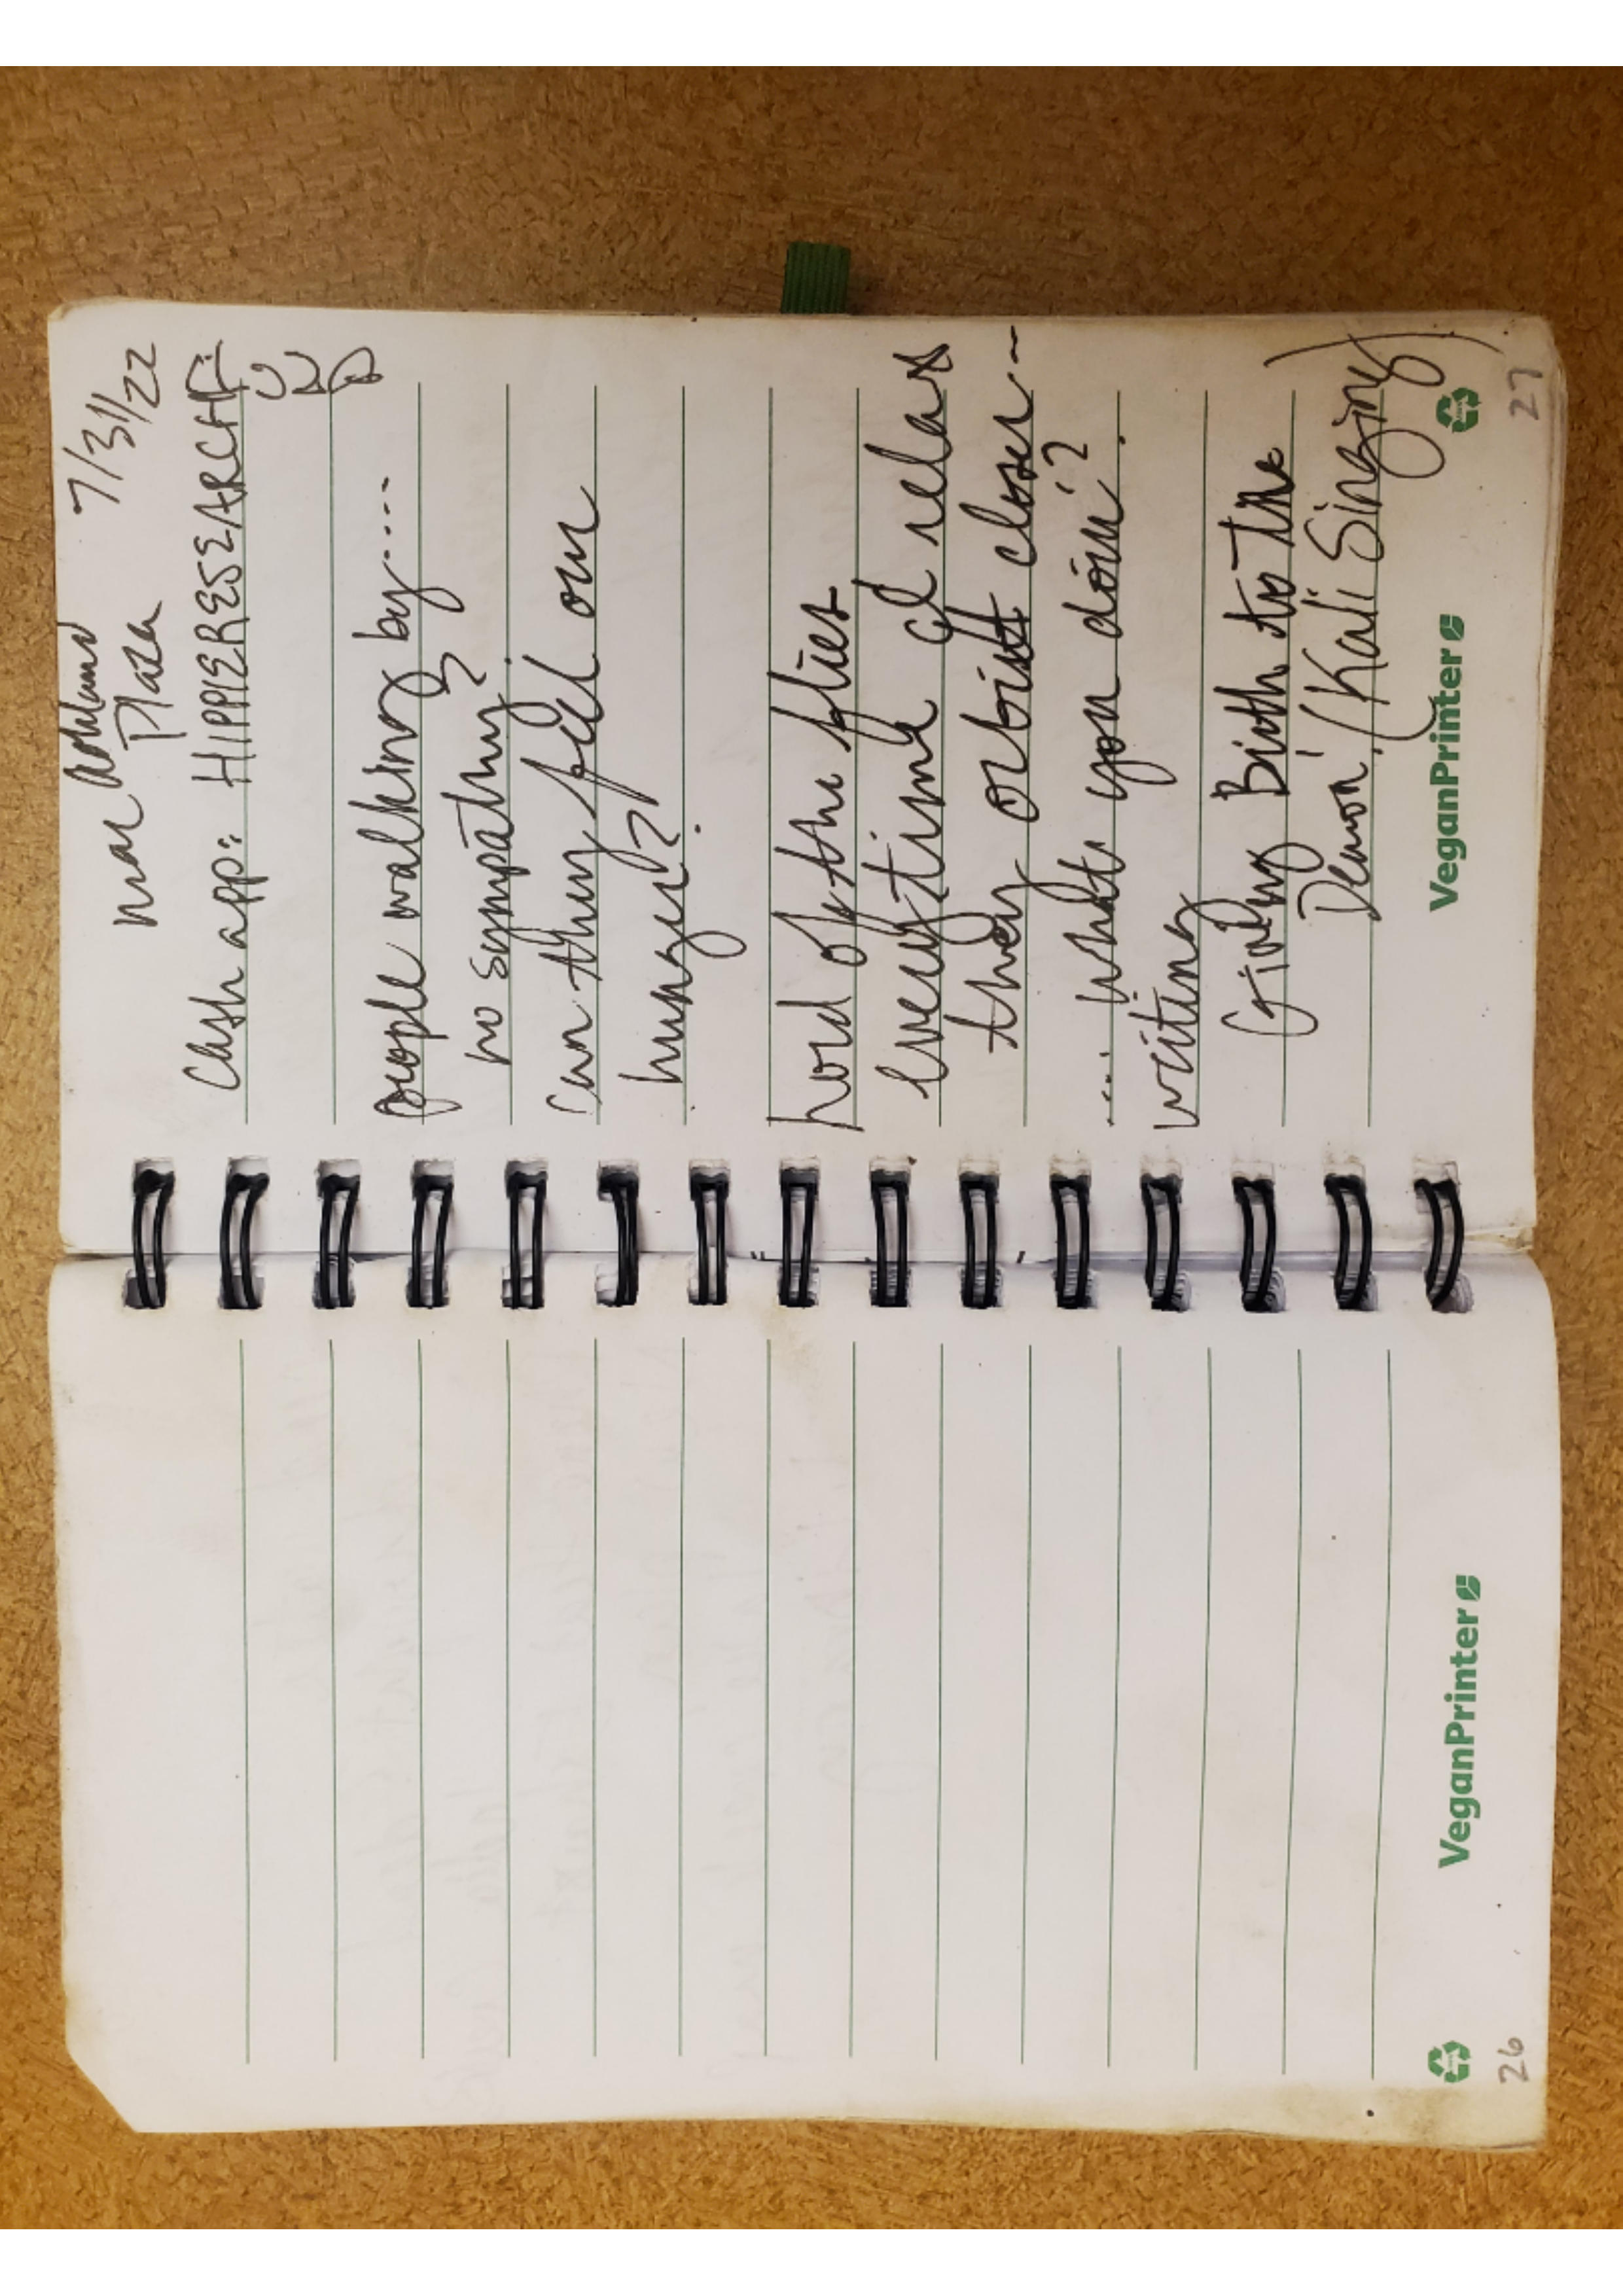 near Ashland 7/31/22
Plaza
Cash app: HIPPIERESEARCHF
UND
people walking by....
no sympathy?
Can they feel our
hunger?
lord of the flies
everytime I relax
they orbit closer--
.... what you doin'?
writing
Giving Birth to the
Demon! (Kali Singing)
VeganPrinter
27
VeganPrinter
26